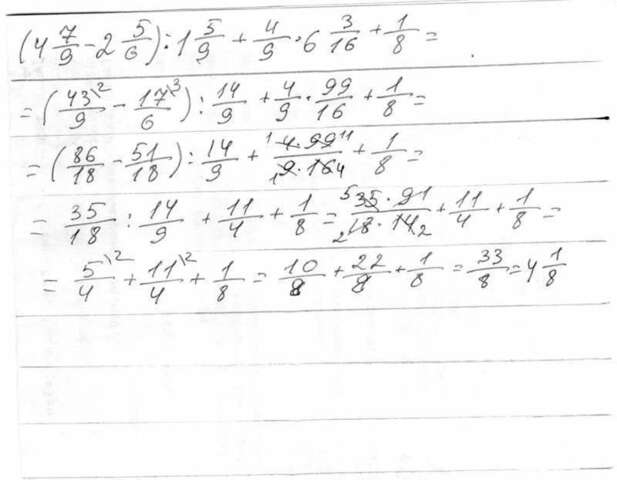 (4 7/9 - 2 5/6) : 1 5/9 + 4/9 · 6 3/16 + 1/8 =
= (43\2/9 - 17\3/6) : 14/9 + 4/9 · 99/16 + 1/8 =
= (86/18 - 51/18) : 14/9 + 1 4·99 11/1 9·16 4 + 1/8 =
= 35/18 : 14/9 + 11/4 + 1/8 = 5 35·9 1/2 18·14 2 + 11/4 + 1/8 =
= 5\2/4 + 11\2/4 + 1/8 = 10/8 + 22/8 + 1/8 = 33/8 = 4 1/8